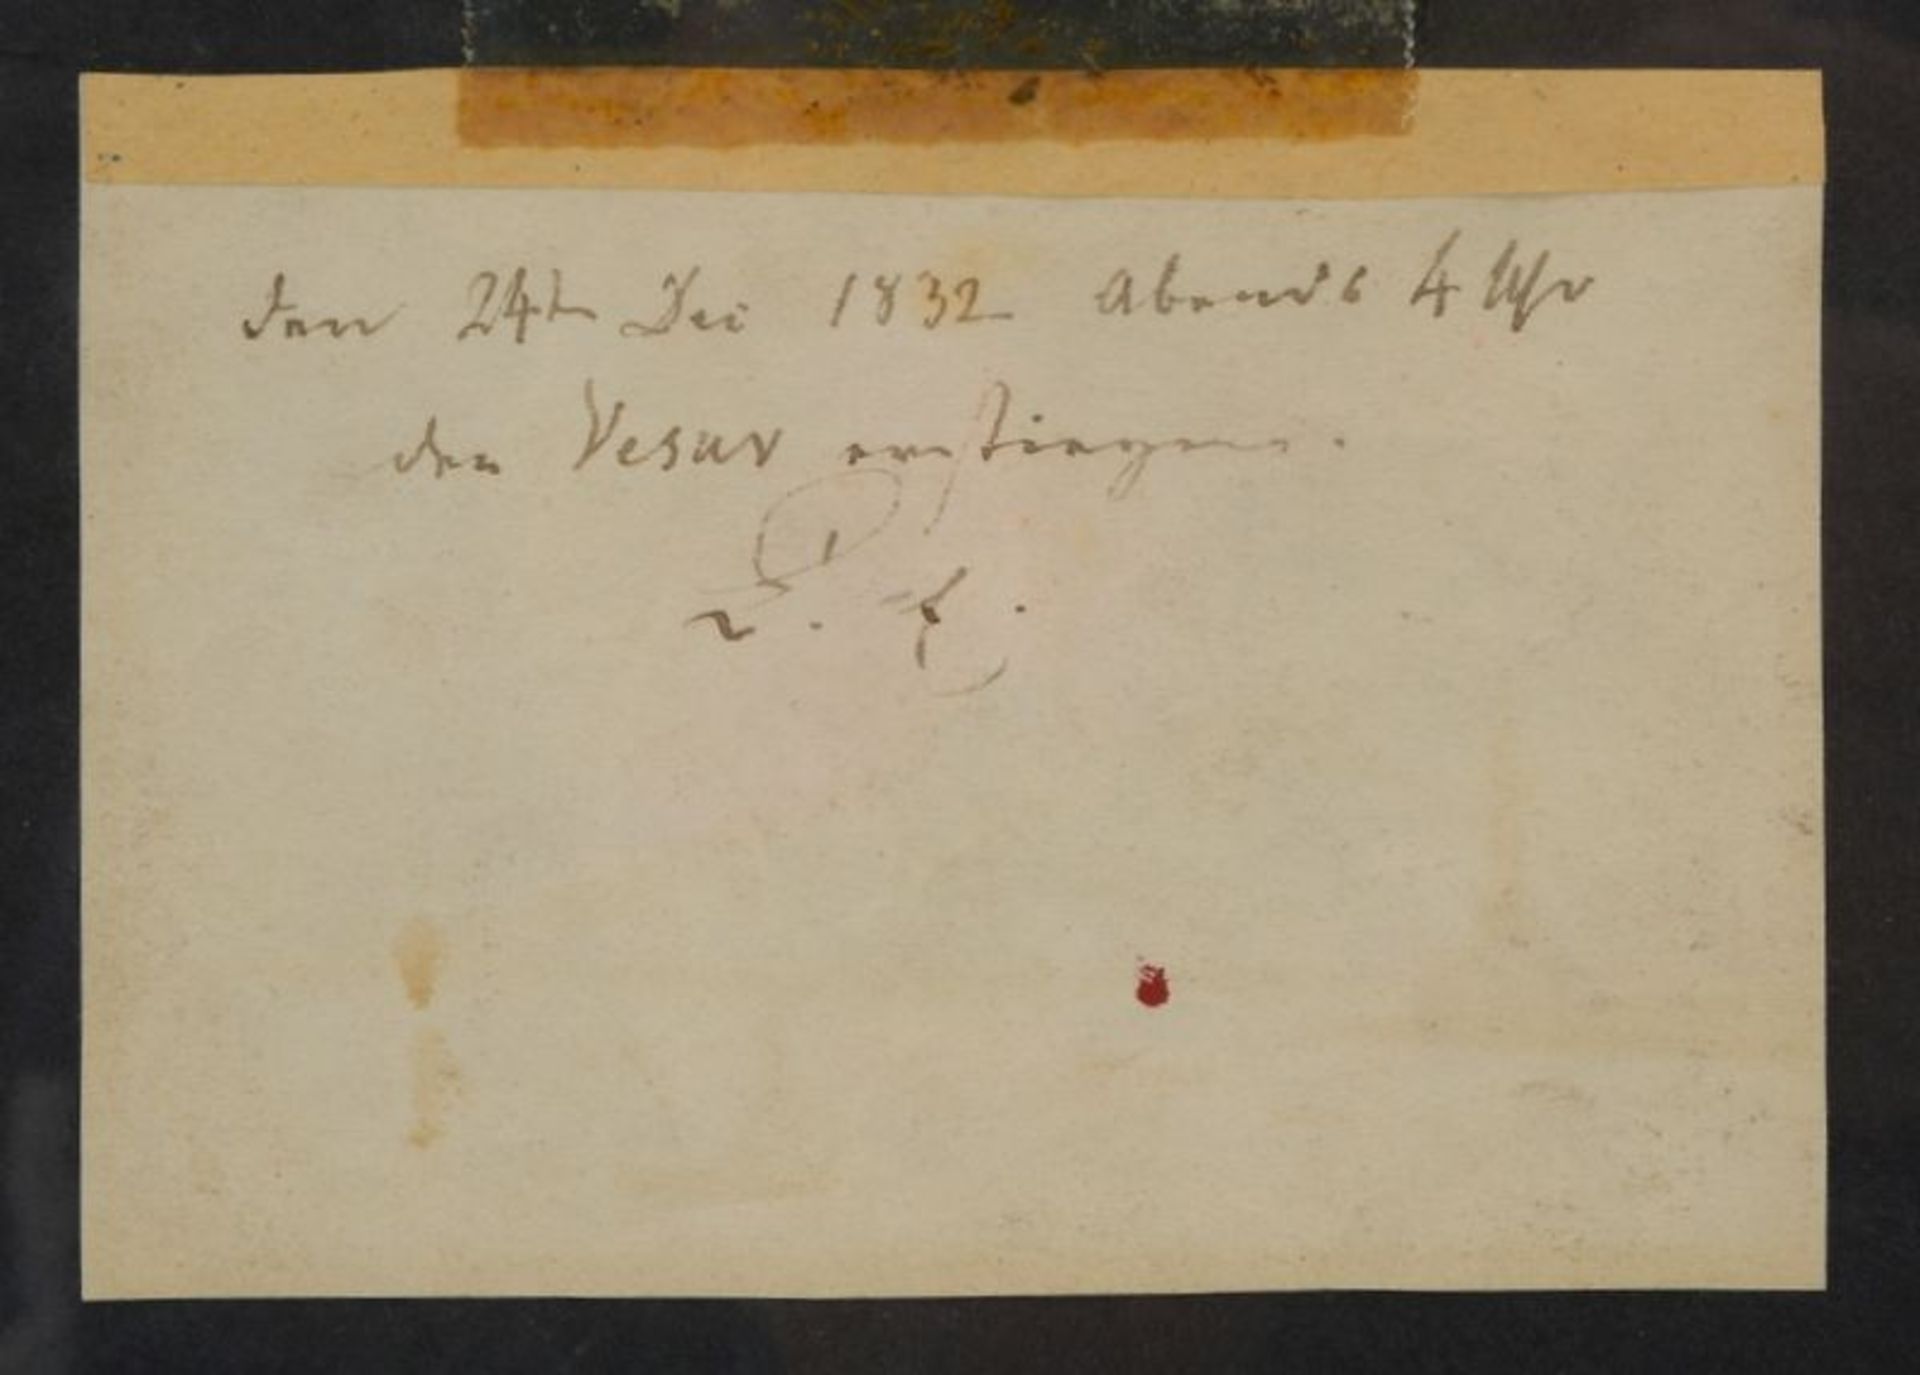 den 24t Dec 1832 Abends 4 Uhr
den Vesuv erstiegen.
L. E.